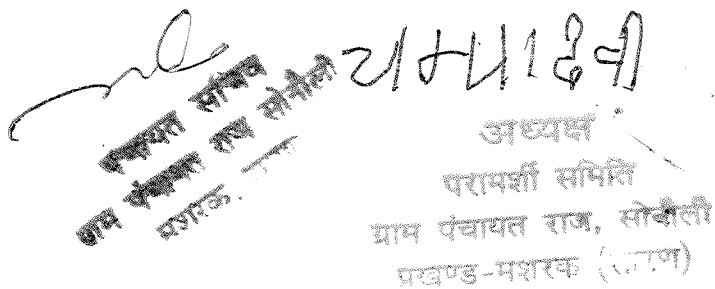 पंचायत सचिव
ग्राम पंचायत राज सोनौली
मशरक,
देवी
अध्यक्ष
परामर्शी समिति
ग्राम पंचायत राज, सोनौली
प्रखण्ड-मशरक